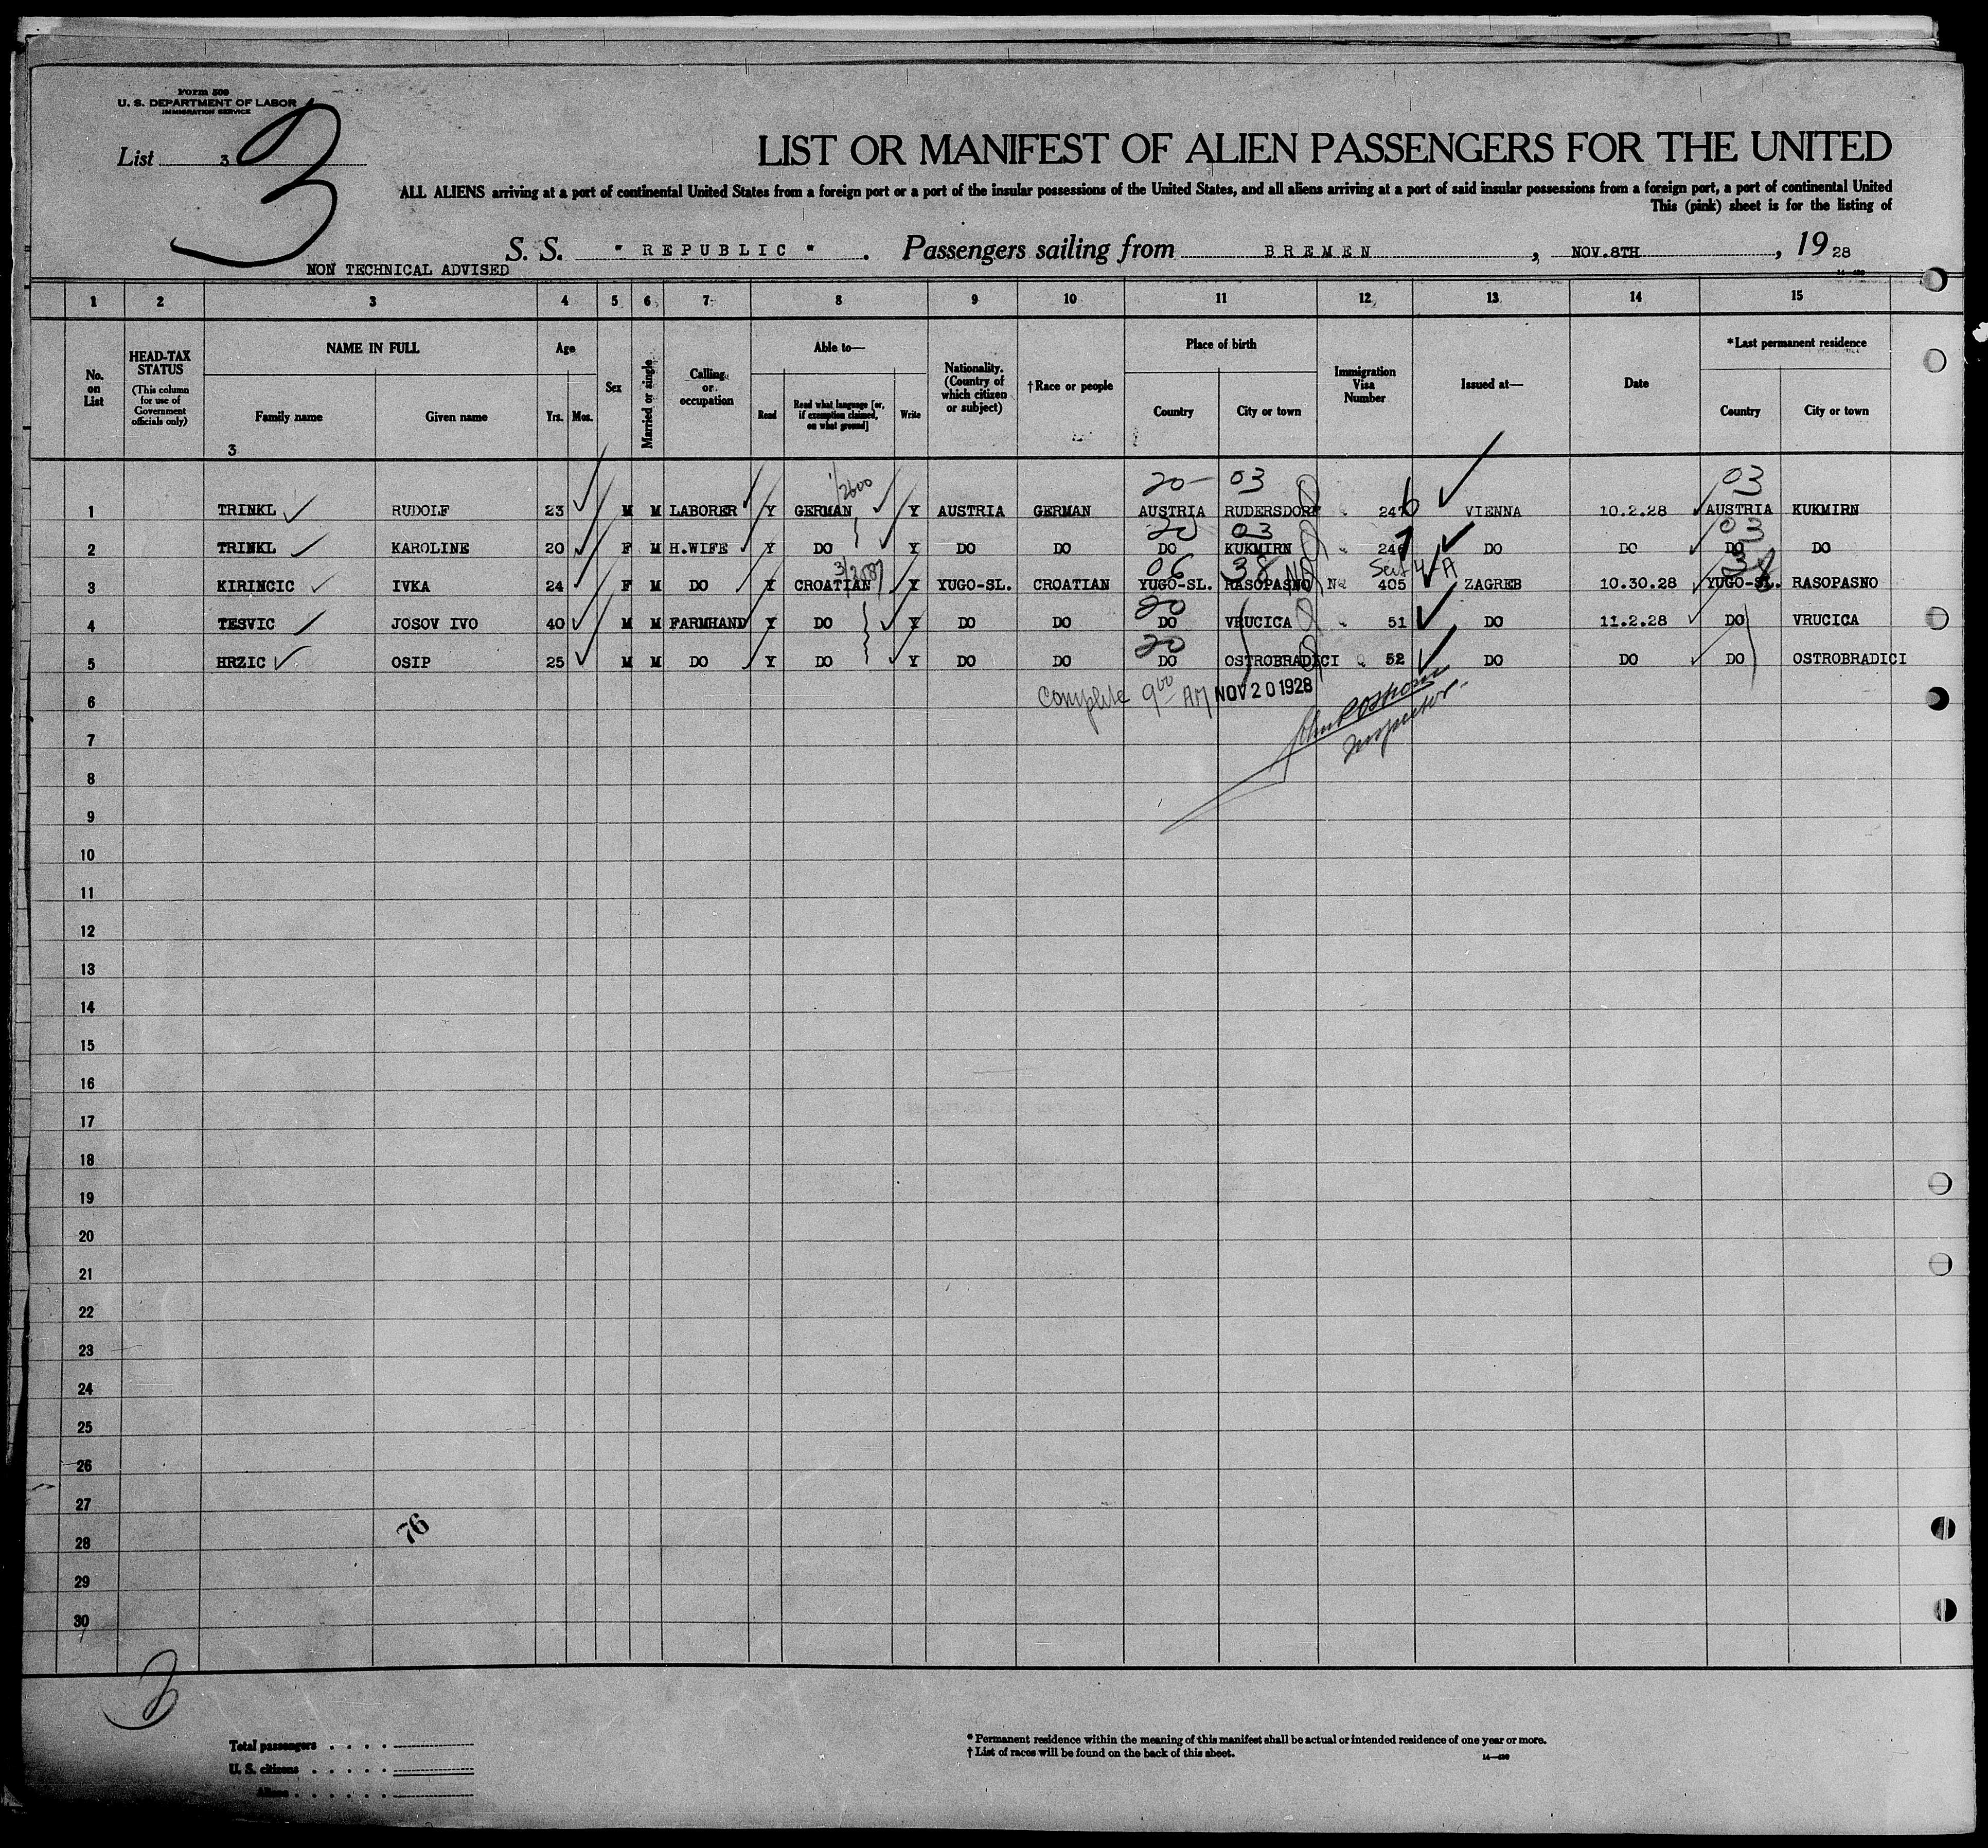 Form 500
U. S. DEPARTMENT OF LABOR
IMMIGRATION SERVICE
List 3
3
LIST OR MANIFEST OF ALIEN PASSENGERS FOR THE UNITED
ALL ALIENS arriving at a port of continental United States from a foreign port or a port of the insular possessions of the United States, and all aliens arriving at a port of said insular possessions from a foreign port, a port of continental United
This (pink) sheet is for the listing of
S. S. " REPUBLIC ". Passengers sailing from BREMEN, NOV.8TH, 1928
NON TECHNICAL ADVISED
1 2 3 4 5 6 7 8 9 10 11 12 13 14 15
No. on List
HEAD-TAX STATUS
(This column for use of Government officials only)
NAME IN FULL
Family name Given name
3
Age
Yrs. Mos.
Sex
Married or single
Calling or occupation
Able to—
Read Read what language [or, if exemption claimed, on what ground] Write
Nationality. (Country of which citizen or subject)
†Race or people
Place of birth
Country City or town
Immigration Visa Number
Issued at—
Date
*Last permanent residence
Country City or town
1/2600 20- 03 03
1 TRINKL RUDOLF 23 M M LABORER Y GERMAN Y AUSTRIA GERMAN AUSTRIA RUDERSDORF 246 VIENNA 10.2.28 AUSTRIA KUKMIRN
20 03 03
2 TRINKL KAROLINE 20 F M H.WIFE Y DO Y DO DO DO KUKMIRN 247 DO DO DO DO
06 38 Sec 4-A 38
3 KIRINCIC IVKA 24 F M DO Y CROATIAN Y YUGO-SL. CROATIAN YUGO-SL. RASOPASNO NQ 405 ZAGREB 10.30.28 YUGO-SL. RASOPASNO
20
4 TESVIC JOSOV IVO 40 M M FARMHAND Y DO Y DO DO DO VRUCICA 51 DO 11.2.28 DO VRUCICA
20
5 HRZIC OSIP 25 M M DO Y DO Y DO DO DO OSTROBRADICI Q 52 DO DO DO OSTROBRADICI
6 Complete 900 AM NOV 20 1928
Inspector.
7
8
9
10
11
12
13
14
15
16
17
18
19
20
21
22
23
24
25
26
27
76
28
29
30
3
Total passengers
U. S. citizens
Aliens
* Permanent residence within the meaning of this manifest shall be actual or intended residence of one year or more.
† List of races will be found on the back of this sheet.